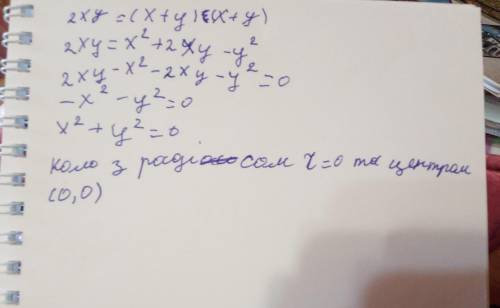 2xy = (x+y)(x+y)
2xy = x² + 2xy - y²
2xy - x² - 2xy - y² = 0
-x² - y² = 0
x² + y² = 0
коло з радіусом r=0 та центром
(0,0)